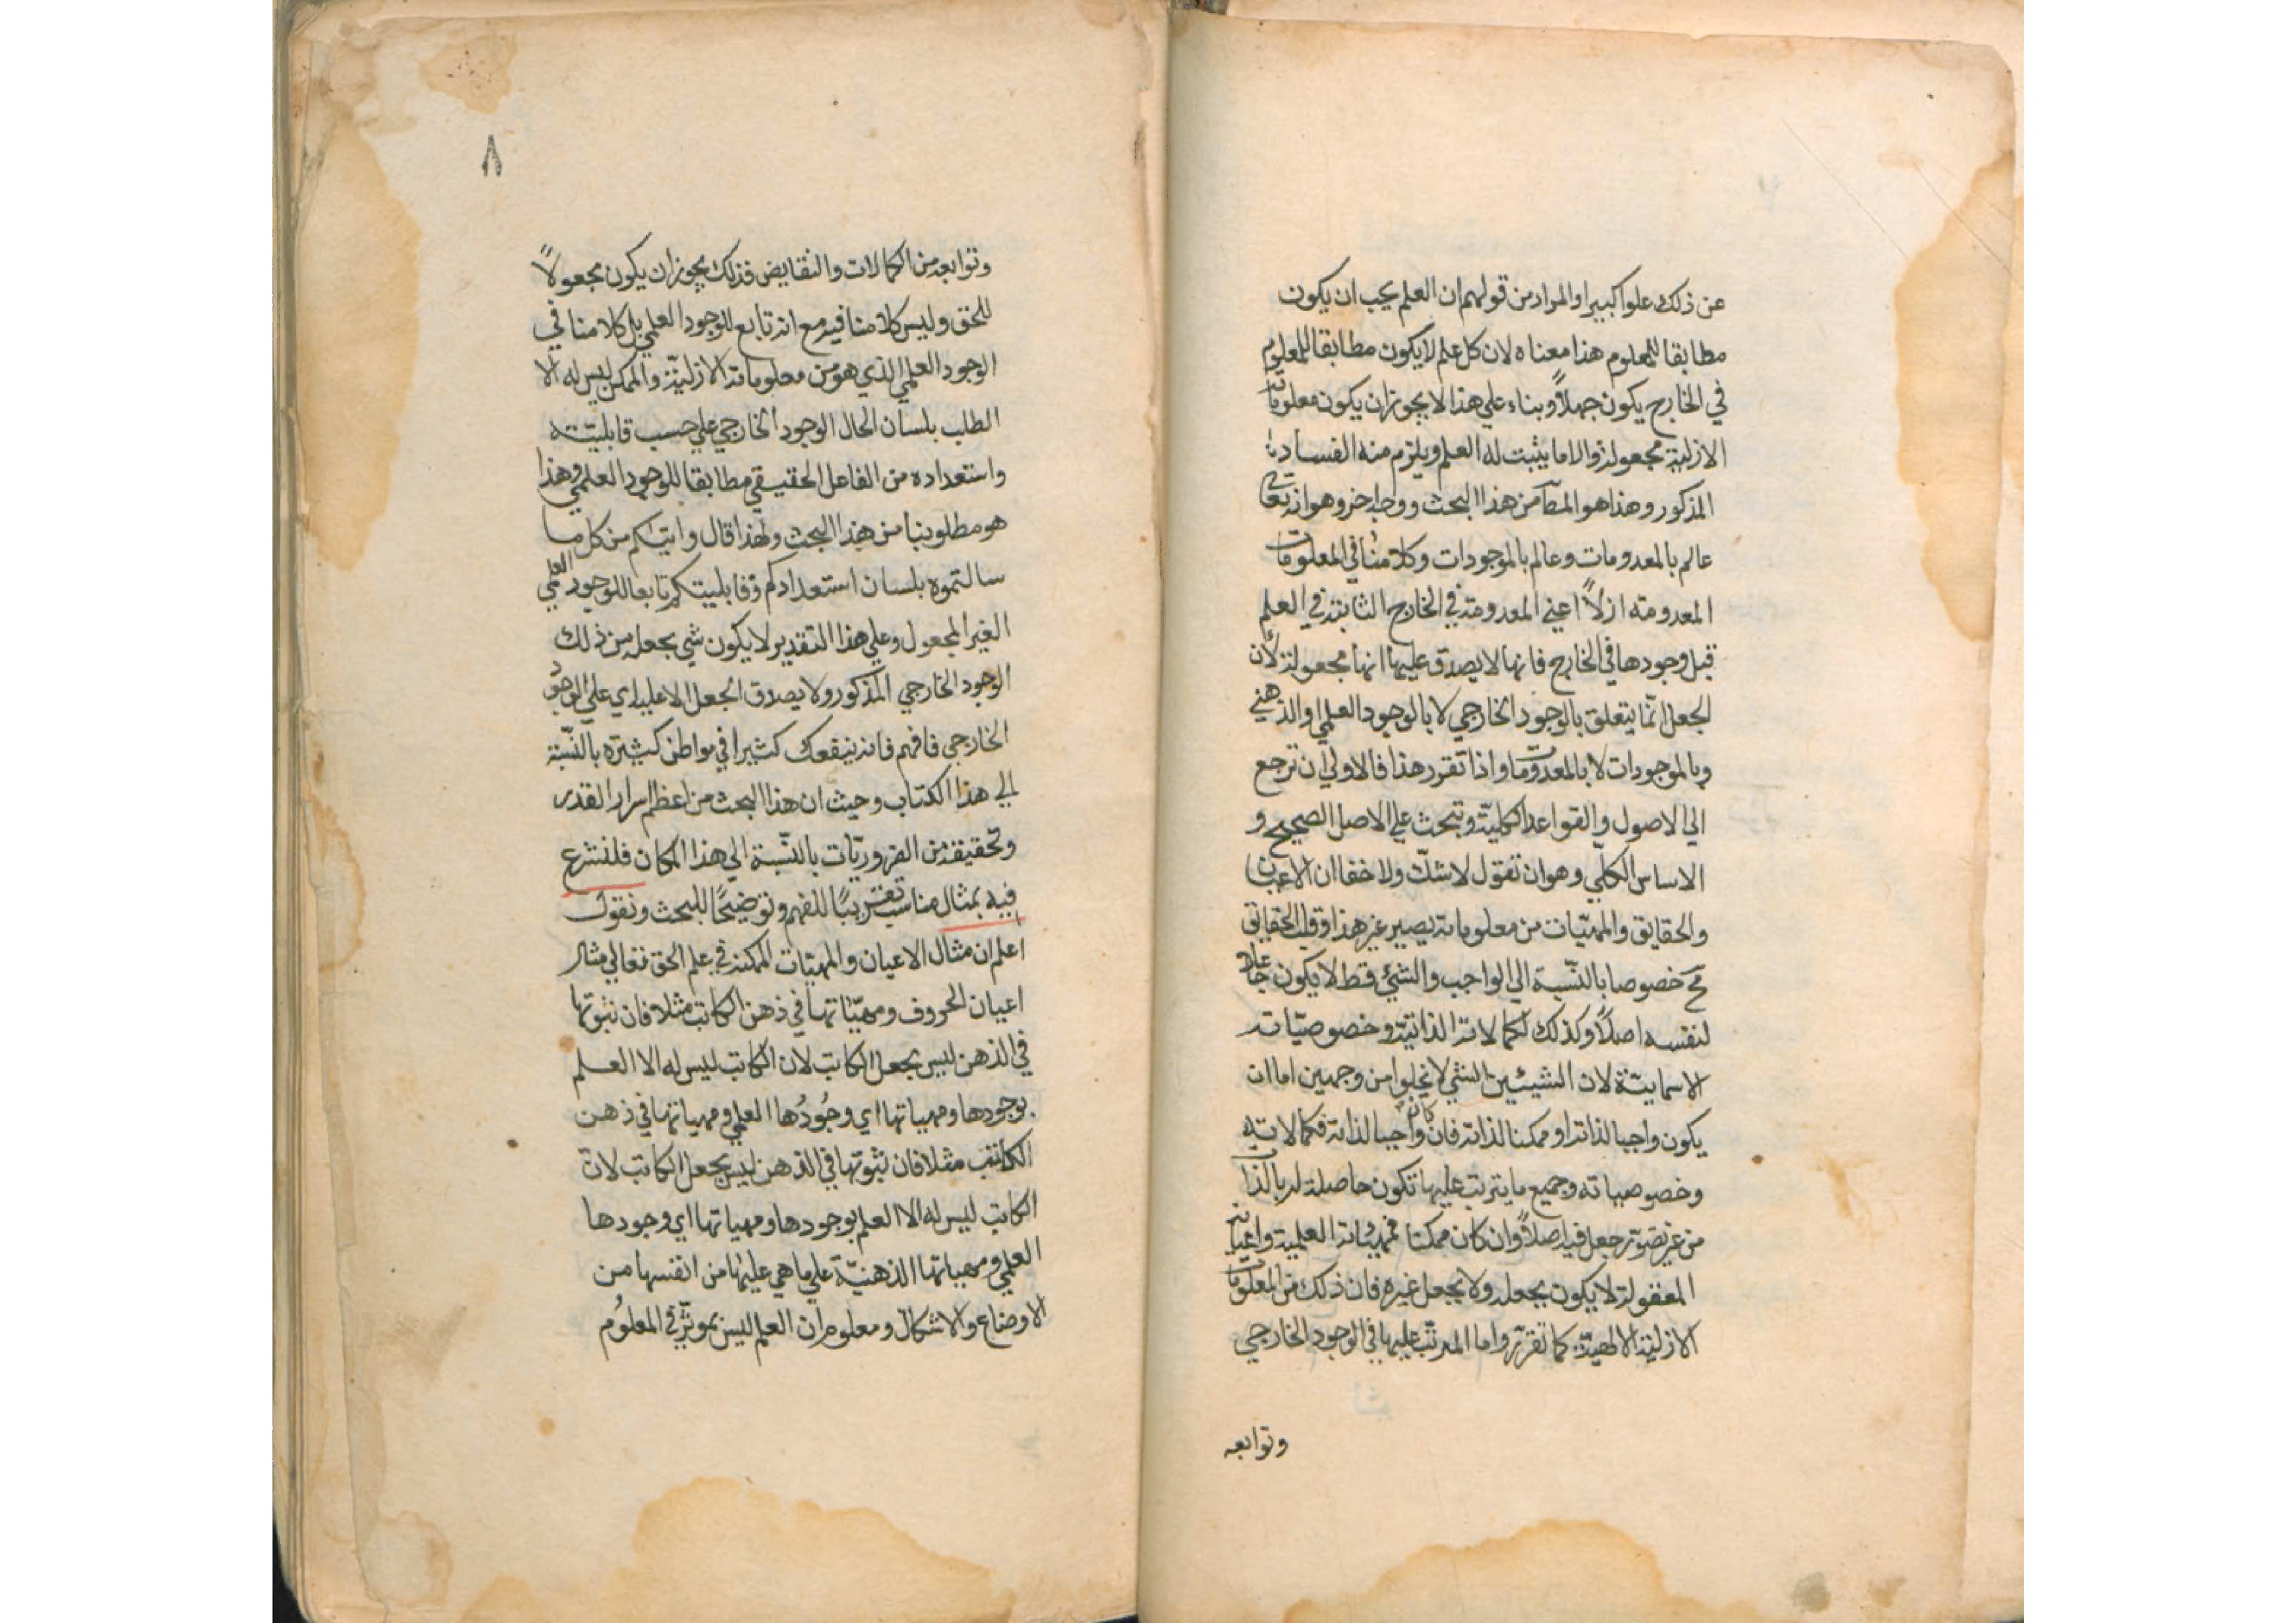 عن ذلك علوا كبيرا والمراد من قولهم ان العلم يجب ان يكون
مطابقا للمعلوم هذا معناه لان كل علم لا يكون مطابقا للمعلوم
في الخارج يكون جهلاً وبناء علي هذا لا يجوز ان يكون معلوماته
الازلية مجعولة والا ما يثبت له العلم ويلزم منه الفساد
المذكور وهذا هو المط من هذا البحث ووجه اخر وهو انه تعالي
عالم بالمعدومات وعالم بالموجودات وكلامنا في المعلومات
المعدومة ازلاً اعني المعدومة في الخارج الثابتة في العلم
قبل وجودها في الخارج فانها لا يصدق عليها انها مجعولة لأن
الجعل انّما يتعلق بالوجود الخارجي لا بالوجود العلمي والذهني
وبالموجودات لا بالمعدومات واذا تقرر هذا فالاولي ان نرجع
الي الاصول والقواعد الكلية ونبحث علي الاصل الصحيح و
الاساس الكلّي وهو ان نقول لا شكّ ولا خفا ان الاعيان
والحقايق والمهيّات من معلوماته يصير غير هذا وقلب الحقايق
مح خصوصا بالنّسبة الي الواجب والشئ قط لا يكون جاعلا
لنفسه اصلاً وكذلك لكمالاته الذاتيّة وخصوصيّاته
الاسمايّة لان الشي لا يخلوا من وجهين اما ان
يكون واجبا لذاته او ممكنا لذاته فان كان واجبا لذاته فكمالاته
وخصوصياته وجميع ما يترتب عليها تكون حاصلة له بالذات
من غير تصوّر جعل فيه اصلاً وان كان ممكنا فمهيّاته العلمية واعيانه
المعقولة لا يكون بجعله ولا بجعل غيره فان ذلك من المعلومات
الازلية الالهيّة كما تقرّر واما المرتّب عليها في الوجود الخارجي
وتوابعه
٨
وتوابعه من الكمالات والنقايض فذلك يجوز ان يكون مجعولاً
للحق وليس كلامنا فيه مع انه تابع للوجود العلمي بل كلامنا في
الوجود العلمي الذي هو من معلوماته الازليّة والممكن ليس له الا
الطلب بلسان الحال الوجود الخارجي علي حسب قابليّته
واستعداده من الفاعل الحقيقي مطابقا للوجود العلمي وهذا
هو مطلوبنا من هذا البحث ولهذا قال واتيكم من كل ما
سالتموه بلسان استعدادكم وقابليتكم تابعا للوجود العلمي
الغير المجعول وعلي هذا التقدير لا يكون شي بجعله من ذلك
الوجود الخارجي المذكور ولا يصدق الجعل الا عليه اي علي الوجود
الخارجي فافهم فانه ينفعك كثيرا في مواطن كثيره بالنّسبة
الي هذا الكتاب وحيث ان هذا البحث من اعظم اسرار القدر
وتحقيقه من الضروريّات بالنّسبة الي هذا المكان فلنشرع
فيه بمثال مناسب تقريبًا للفهم وتوضيحًا للبحث ونقول
اعلم ان مثال الاعيان والمهيّات الممكنة في علم الحق تعالي مثال
اعيان الحروف ومهيّاتها في ذهن الكاتب مثلا فان ثبوتها
في الذهن ليس بجعل الكاتب لان الكاتب ليس له الا العلم
بوجودها ومهياتها اي وجُودُها العلمي ومهياتها في ذهن
الكاتب مثلا فان ثبوتها في الذهن ليس بجعل الكاتب لان
الكاتب ليس له الا العلم بوجودها ومهياتها اي وجودها
العلمي ومهياتها الذهنيّة علي ما هي عليها من انفسها من
الاوضاع والاشكال ومعلوم ان العلم ليس بموثّر في المعلُوم